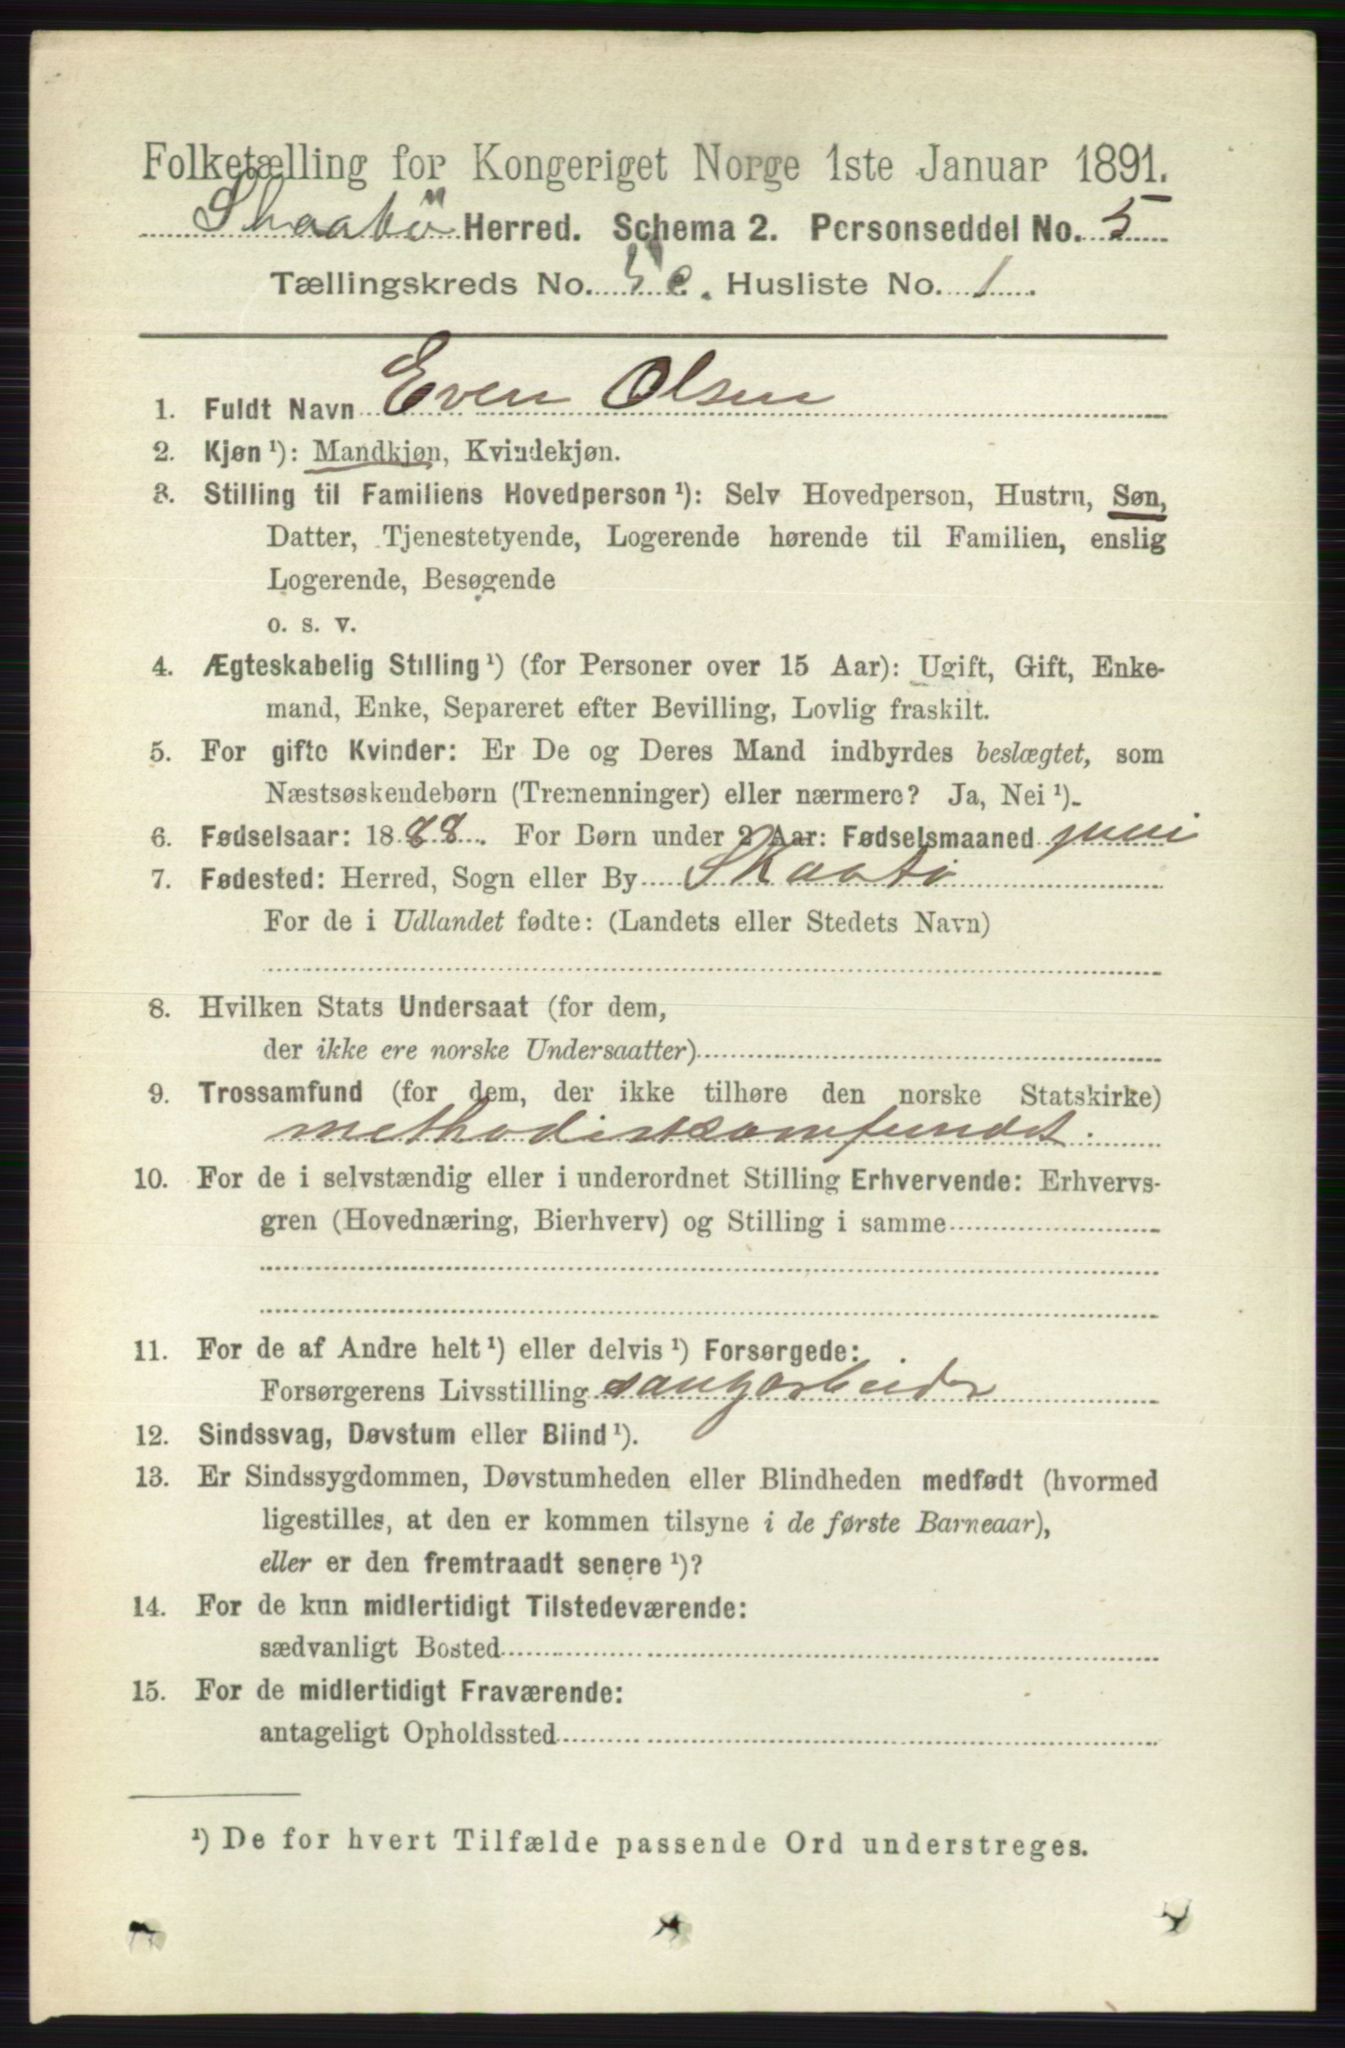 Folketælling for Kongeriget Norge 1ste Januar 1891.
Skaatö Herred. Schema 2. Personseddel No. 5
Tællingskreds No. 5 e. Husliste No. 1
1. Fuldt Navn Even Olsen
2. Kjøn ¹): Mandkjøn, Kvindekjøn.
3. Stilling til Familiens Hovedperson ¹): Selv Hovedperson, Hustru, Søn,
Datter, Tjenestetyende, Logerende hørende til Familien, enslig
Logerende, Besøgende
o. s. v.
4. Ægteskabelig Stilling ¹) (for Personer over 15 Aar): Ugift, Gift, Enke-
mand, Enke, Separeret efter Bevilling, Lovlig fraskilt.
5. For gifte Kvinder: Er De og Deres Mand indbyrdes beslægtet, som
Næstsøskendebørn (Tremenninger) eller nærmere? Ja, Nei ¹).
6. Fødselsaar: 1888. For Børn under 2 Aar: Fødselsmaaned juni
7. Fødested: Herred, Sogn eller By Skaatö
For de i Udlandet fødte: (Landets eller Stedets Navn)
8. Hvilken Stats Undersaat (for dem,
der ikke ere norske Undersaatter)
9. Trossamfund (for dem, der ikke tilhøre den norske Statskirke)
methodistsamfundet.
10. For de i selvstændig eller i underordnet Stilling Erhvervende: Erhvervs-
gren (Hovednæring, Bierhverv) og Stilling i samme
11. For de af Andre helt ¹) eller delvis ¹) Forsørgede:
Forsørgerens Livsstilling saugarbeider
12. Sindssvag, Døvstum eller Blind ¹).
13. Er Sindssygdommen, Døvstumheden eller Blindheden medfødt (hvormed
ligestilles, at den er kommen tilsyne i de første Barneaar),
eller er den fremtraadt senere ¹)?
14. For de kun midlertidigt Tilstedeværende:
sædvanligt Bosted
15. For de midlertidigt Fraværende:
antageligt Opholdssted
¹) De for hvert Tilfælde passende Ord understreges.